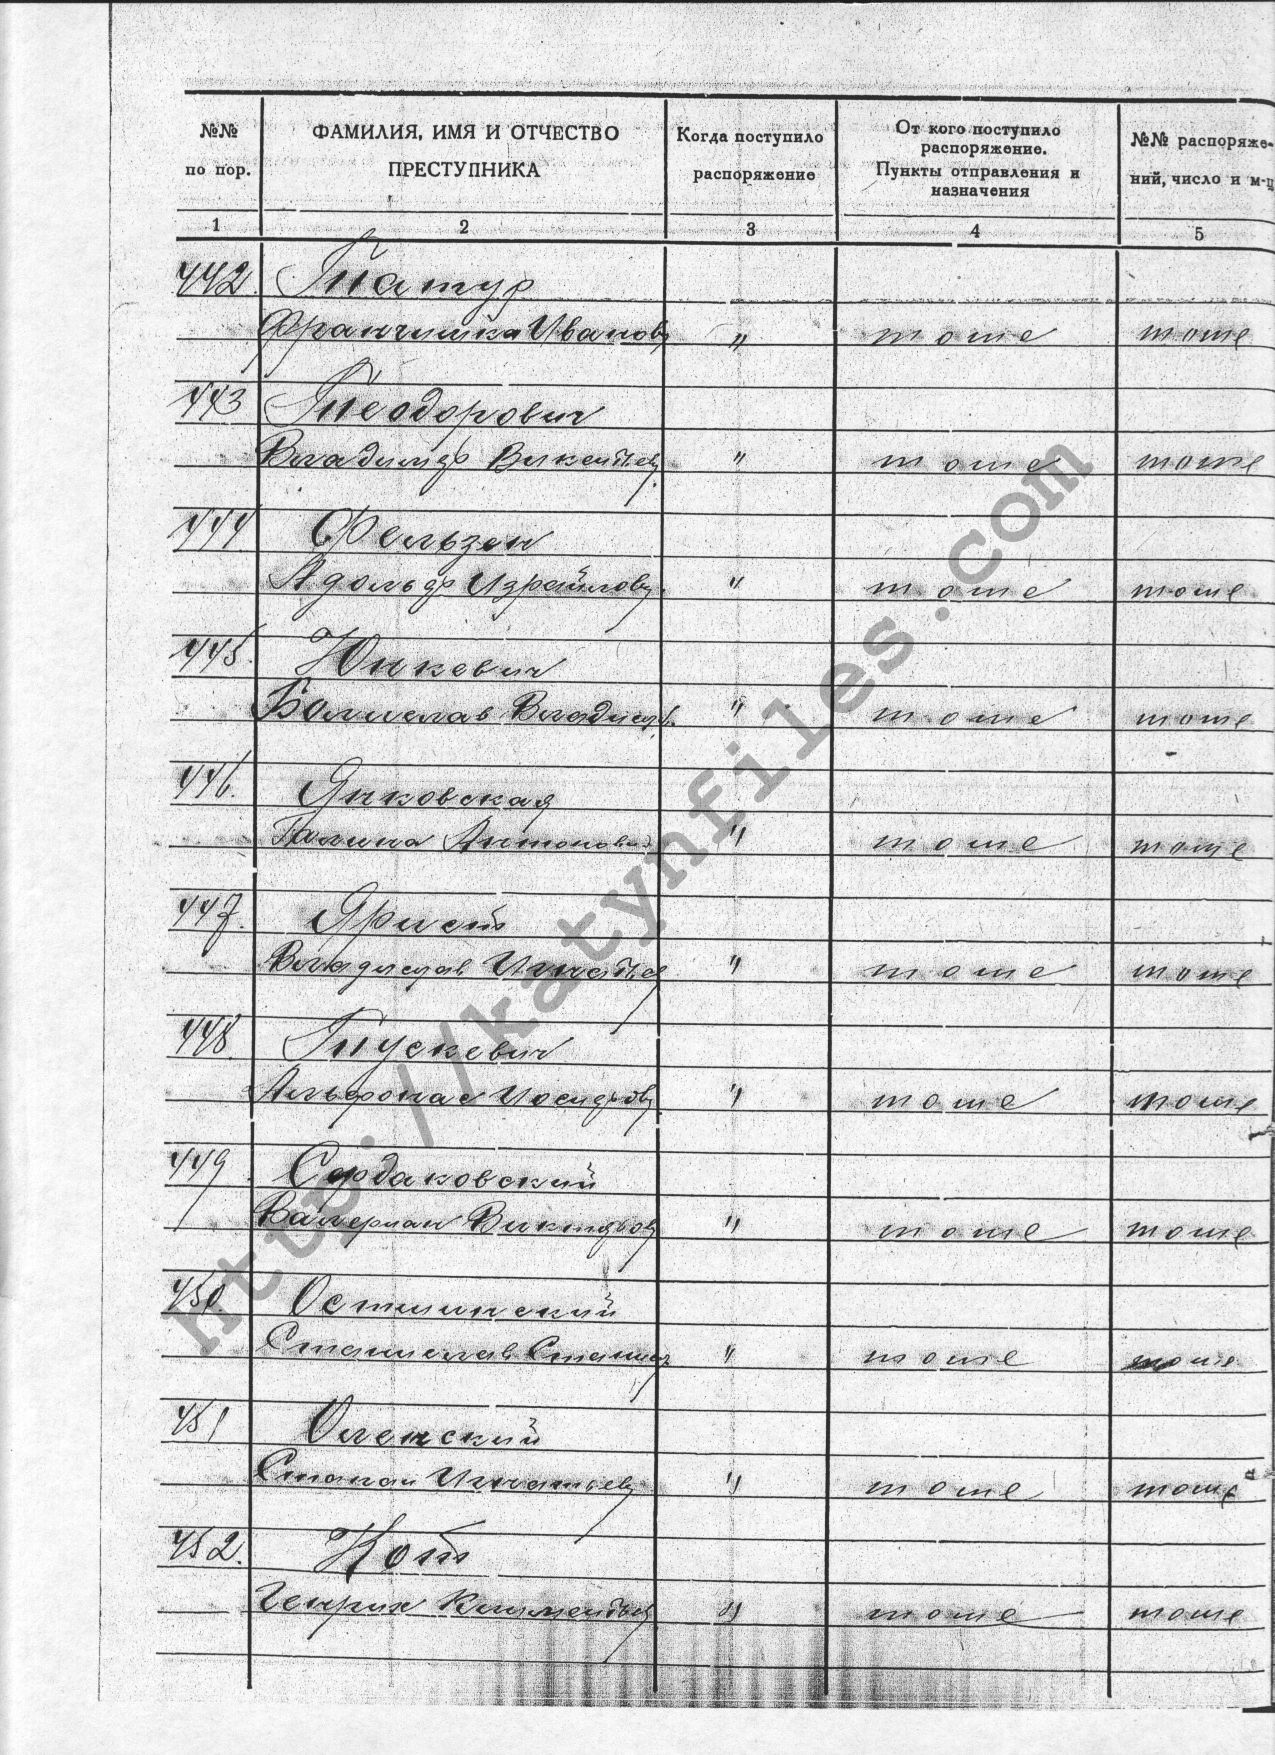 №№ по пор.
ФАМИЛИЯ, ИМЯ И ОТЧЕСТВО ПРЕСТУПНИКА
Когда поступило распоряжение
От кого поступило распоряжение. Пункты отправления и назначения
№№ распоряже-
ний, число и м-ц
1 2 3 4 5
442. Татур
Францишка Иванов " тоже тоже
443 Теодорович
Владимир Викентьев " тоже тоже
444 Фельзен
Адольф Израйлов " тоже тоже
445. Юнкевич
Болислав Владисл. " тоже тоже
446. Янковская
Галина Антоновна " тоже тоже
447. Ярист
Владислав Игнатьев " тоже тоже
448. Пускевич
Альфонас Иосифов " тоже тоже
449 Сердаковский
Валериан Викторов " тоже тоже
450 Остшинский
Станислав Станисл " тоже тоже
451 Оленский
Стапан Игнатьев " тоже тоже
452. Кот
Генрих Климентьев " тоже тоже
http://katynfiles.com